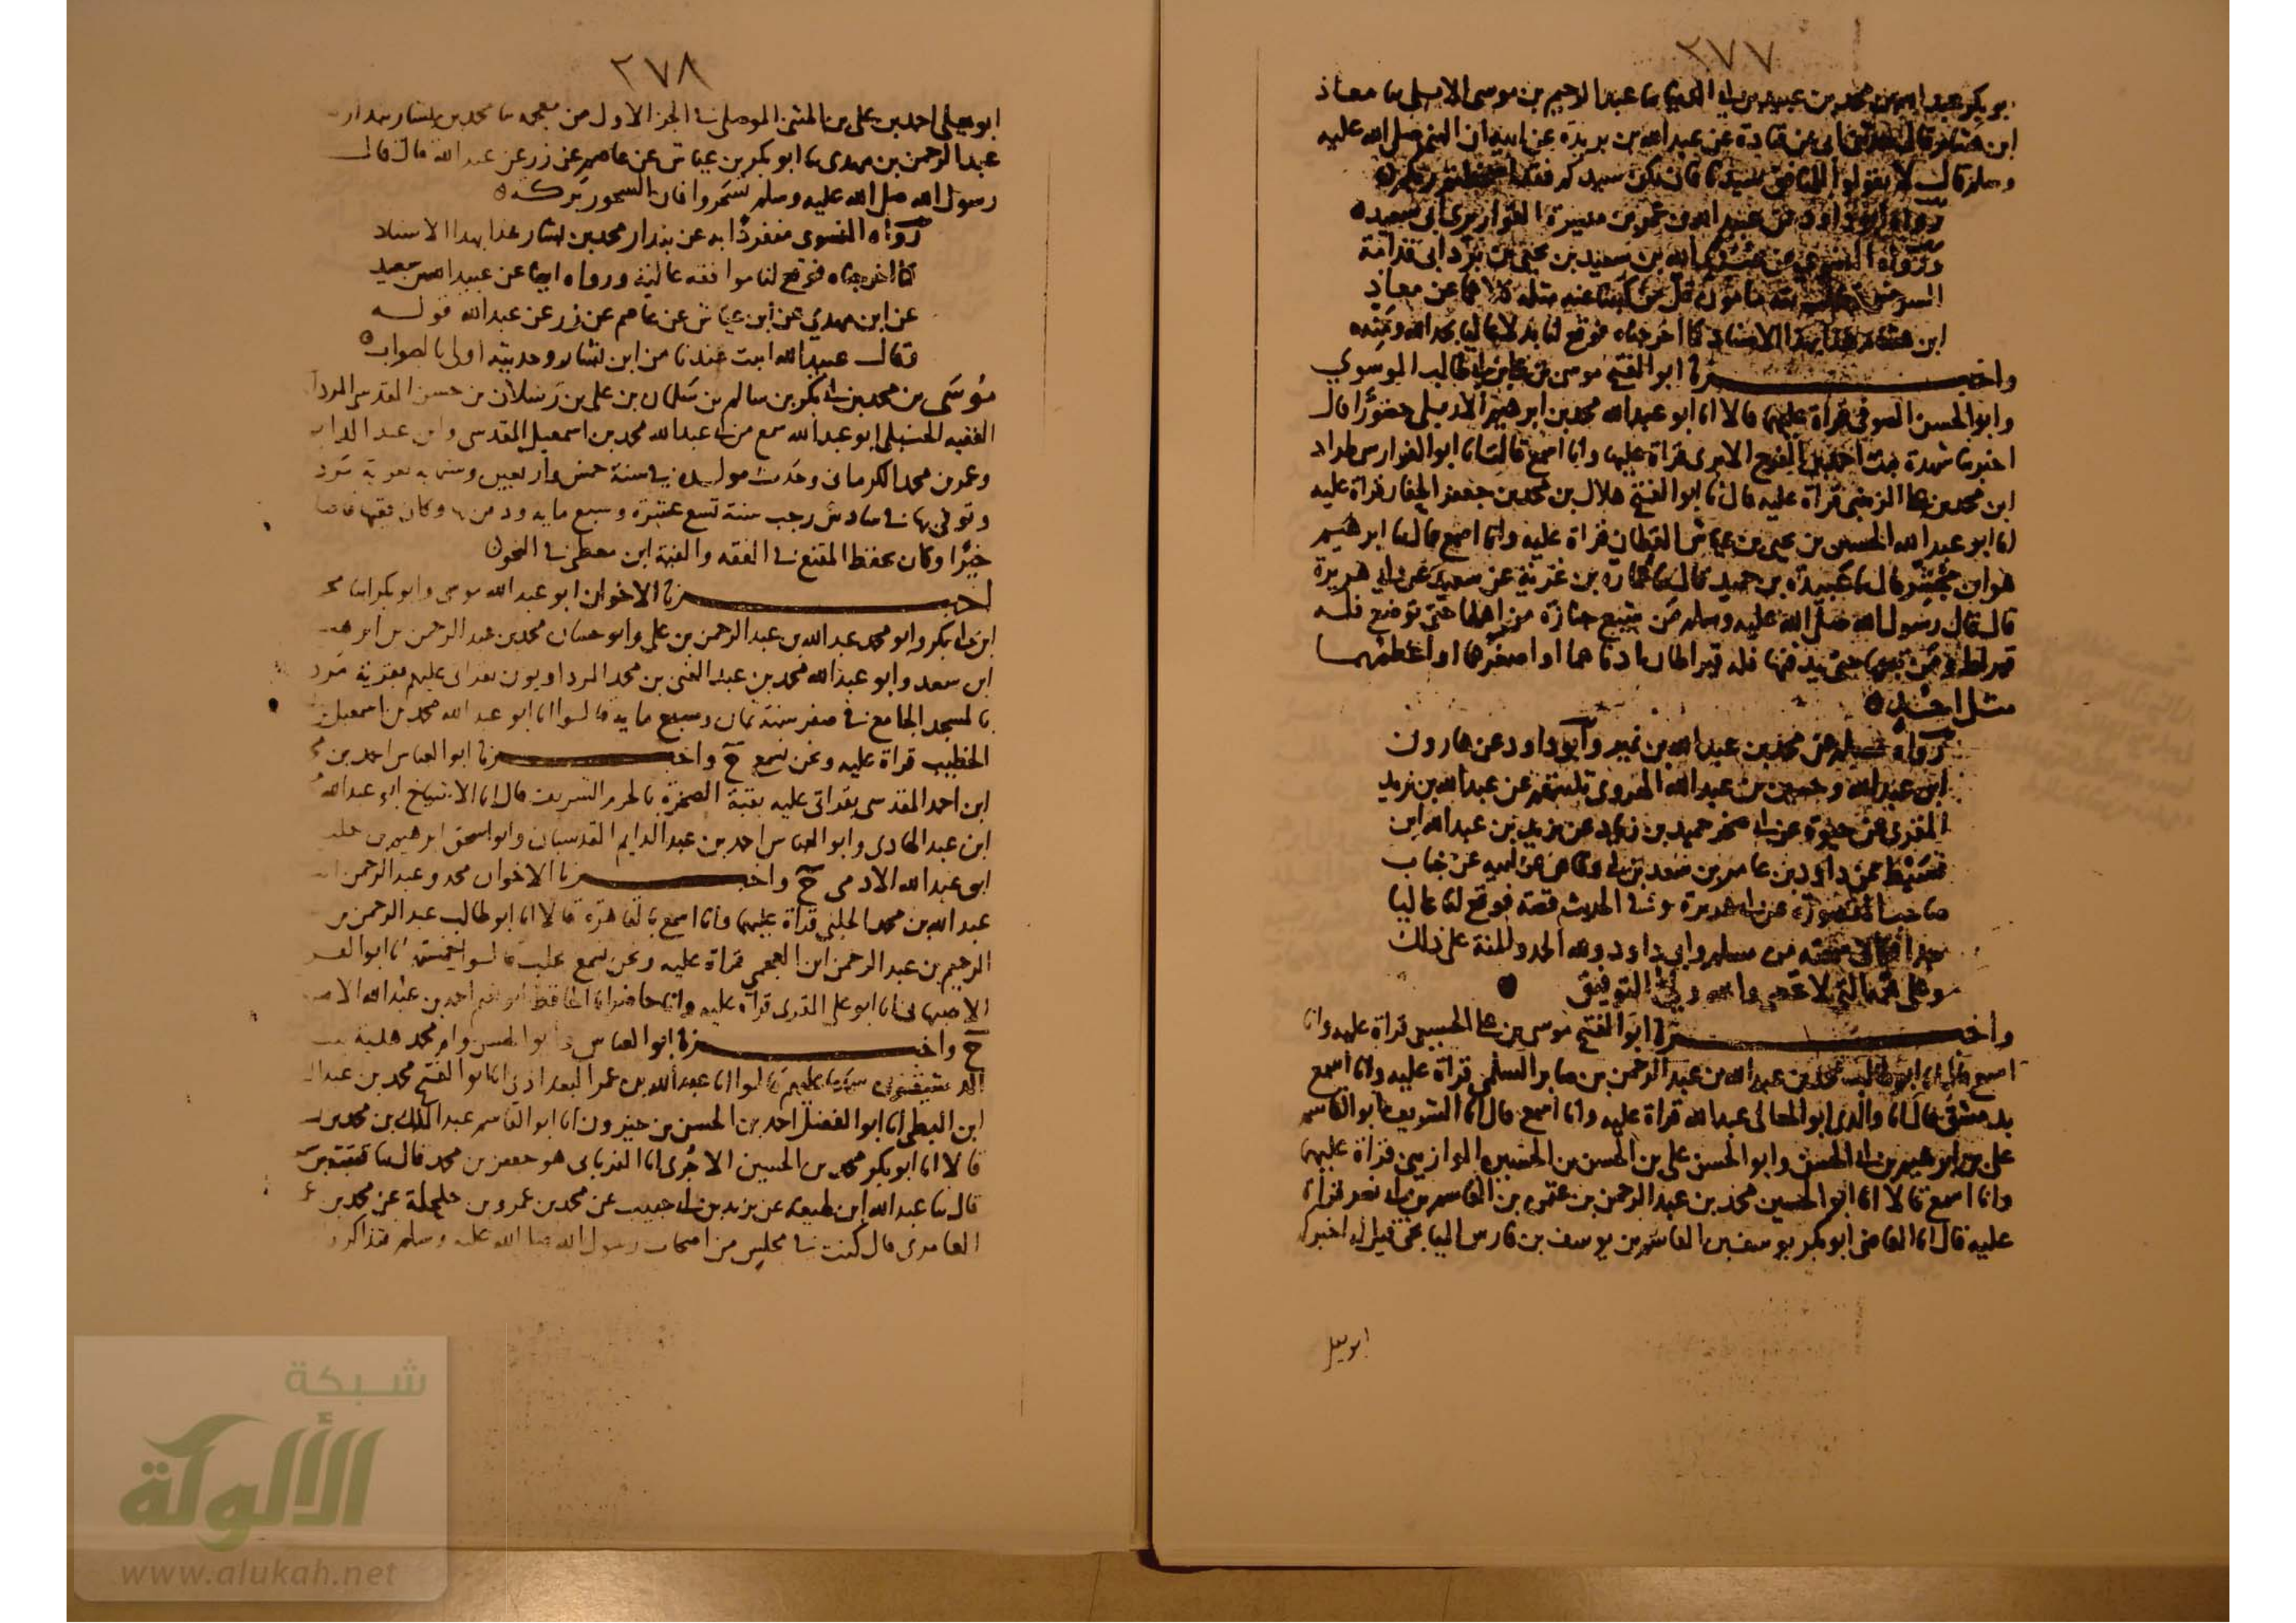 ٢٧٧
ابو بكر عبد الله بن محمد بن عبيد بن ابي الدنيا ثنا عبد الرحيم بن موسى الابلي ثنا معاذ
ابن هشام قال حدثني ابي عن قتادة عن عبد الله بن بريدة عن ابيه ان النبي صلى الله عليه
وسلم قال لا تقولوا للمنافق سيدنا فان يكن سيدكم فقد اسخطتم ربكم
رواه ابو داود عن عبيد الله بن عمر بن ميسرة القواريري ابي سعيد
ورواه النسوي عن عبيد الله بن سعيد بن يحيى بن برد ابي قدامة
السرخسي ثقة مامون قل من كتبنا عنه مثله كلاهما عن معاذ
ابن هشام بهذا الاسناد كما اخرجناه فوقع لنا بدلا عاليا بحمد الله ومنه
واخبرنا ابو الفتح موسى بن علي بن ابي طالب الموسوي
وابو الحسن الصوفي قراة عليهما قالا انا ابو عبد الله محمد بن ابرهيم الاربلي حضورا قال
اخبرتنا شهدة بنت احمد بن الفرج الابري قراة عليها وانا اسمع قالت انا ابو الفوارس طراد
ابن محمد بن علي الزينبي قراة عليه قال انا ابو الفتح هلال بن محمد بن جعفر الحفار قراة عليه
انا ابو عبد الله الحسين بن يحيى بن عياش القطان قراة عليه وانا اسمع قال ثنا ابرهيم
هو ابن مجشر قال ثنا عبيدة بن حميد قال ثنا عمارة بن غزية عن سعيد عن ابي هريرة
قال قال رسول الله صلى الله عليه وسلم من يتبع جنازة من اهلها حتى توضع فله
قيراط ومن تبعها حتى يدفنها فله قيراطان ادناهما او اصغرهما او اعظمهما
مثل احد
رواه مسلم عن محمد بن عبد الله بن نمير وابو داود عن هارون
ابن عبد الله وحسين بن عبد الله الهروي ثلثتهم عن عبد الله بن يزيد
المقري عن حيوة عن ابي صخر حميد بن زياد عن يزيد بن عبد الله ابن
قسيط عن داود بن عامر بن سعد بن ابي وقاص عن ابيه عن خباب
صاحب المقصورة عن ابي هريرة وفي الحديث قصة فوقع لنا عاليا
جدا من مسلم وابي داود ولله الحمد والمنة على ذلك
وعلى نعمه التي لا تحصى والله ولي التوفيق
واخبرنا ابو الفتح موسى بن علي الحسيني قراة عليه وانا
اسمع انا ابو طالب محمد بن عبد الله بن عبد الرحمن بن صابر السلمي قراة عليه وانا اسمع
بدمشق قال انا والدي ابو المعالي عبد الله قراة عليه وانا اسمع قال انا الشريف ابو القاسم
علي بن ابرهيم بن ابي الحسن وابو الحسن علي بن الحسن بن الحسين الموازيني قراة عليهما
وانا اسمع قالا انا ابو الحسين محمد بن عبد الرحمن بن عثمن بن القاسم بن ابي نصر قراة
عليه قال انا القاضي ابو بكر يوسف بن القاسم بن يوسف بن فارس الميانجي قيل له اخبركم
ابو يعلى
٢٧٨
ابو يعلى احمد بن علي بن المثنى الموصلي في الجز الاول من معجمه ثنا محمد بن بشار بندار
عبد الرحمن بن مهدي ثنا ابو بكر بن عياش عن عاصم عن زر عن عبد الله قال قال
رسول الله صلى الله عليه وسلم تسحروا فان السحور بركة
رواه النسوي منفردا به عن بندار محمد بن بشار هذا بهذا الاسناد
كما اخرجناه فوقع لنا موافقة عالية ورواه ايضا عن عبيد الله بن سعيد
عن ابن مهدي عن ابن عياش عن عاصم عن زر عن عبد الله قوله
وقال عبيد الله اثبت عندنا من ابن بشار وحديثه اولى بالصواب
موسى بن محمد بن ابي بكر بن سالم بن سلمان بن علي بن رسلان بن حسن المقدسي المردا
الفقيه الحنبلي ابو عبد الله سمع من ابي عبد الله محمد بن اسمعيل المقدسي وابن عبد الدايم
وعمر بن محمد الكرماني وحدث مولده في سنة خمس واربعين وستمايه بقرية مردا
وتوفي بها في سادس رجب سنة تسع عشرة وسبع مايه ودفن بها وكان فقيها فاضلا
خيرا وكان يحفظ المقنع في الفقه والفية ابن معطي في النحو
اخبرنا الاخوان ابو عبد الله موسى وابو بكر ابنا محمد
ابن ابي بكر وابو محمد عبد الله بن عبد الرحمن بن علي وابو حسان محمد بن عبد الرحمن بن ابرهيم
ابن سعد وابو عبد الله محمد بن عبد الغني بن محمد المرداويون بقراتي عليهم بقرية مردا
بالمسجد الجامع في صفر سنة ثمان وسبع مايه قالوا انا ابو عبد الله محمد بن اسمعيل
الخطيب قراة عليه ونحن نسمع ح واخبرنا ابو العباس احمد بن
ابن احمد المقدسي بقراتي عليه بقبة الصخرة بالحرم الشريف قال انا الاشياخ ابو عبد الله
ابن عبد الهادي وابو العباس احمد بن عبد الدايم المقدسيان وابو اسحق ابرهيم بن خليل
ابن عبد الله الادمي ح واخبرنا الاخوان محمد وعبد الرحمن ابنا
عبد الله بن محمد الحلبي قراة عليهما وانا اسمع بالقاهرة قالا انا ابو طالب عبد الرحمن بن
الرحيم بن عبد الرحمن ابن العجمي قراة عليه ونحن نسمع بحلب قالوا خمستهم انا ابو الفرج
الاصبهاني انا ابو علي المقري قراة عليه وانا حاضر انا الحافظ ابو نعيم احمد بن عبد الله الاصبهاني
ح واخبرنا ابو العباس وابو الحسن وام محمد هدية بنت
الدمشقيون عليهم قالوا انا عبد الله بن عمر البغدادي انا ابو الفتح محمد بن عبد ال
ابن البطي انا ابو الفضل احمد بن الحسن بن خيرون انا ابو القاسم عبد الملك بن محمد بن
قالا انا ابو بكر محمد بن الحسين الاجري انا الفريابي هو جعفر بن محمد قال ثنا قتيبة بن
قال ثنا عبد الله ابن لهيعة عن يزيد بن ابي حبيب عن محمد بن عمرو بن حلحلة عن محمد بن ع
العامري قال كنت في مجلس من اصحاب رسول الله صلى الله عليه وسلم فتذاكروا
شبكة
الألوكة
www.alukah.net